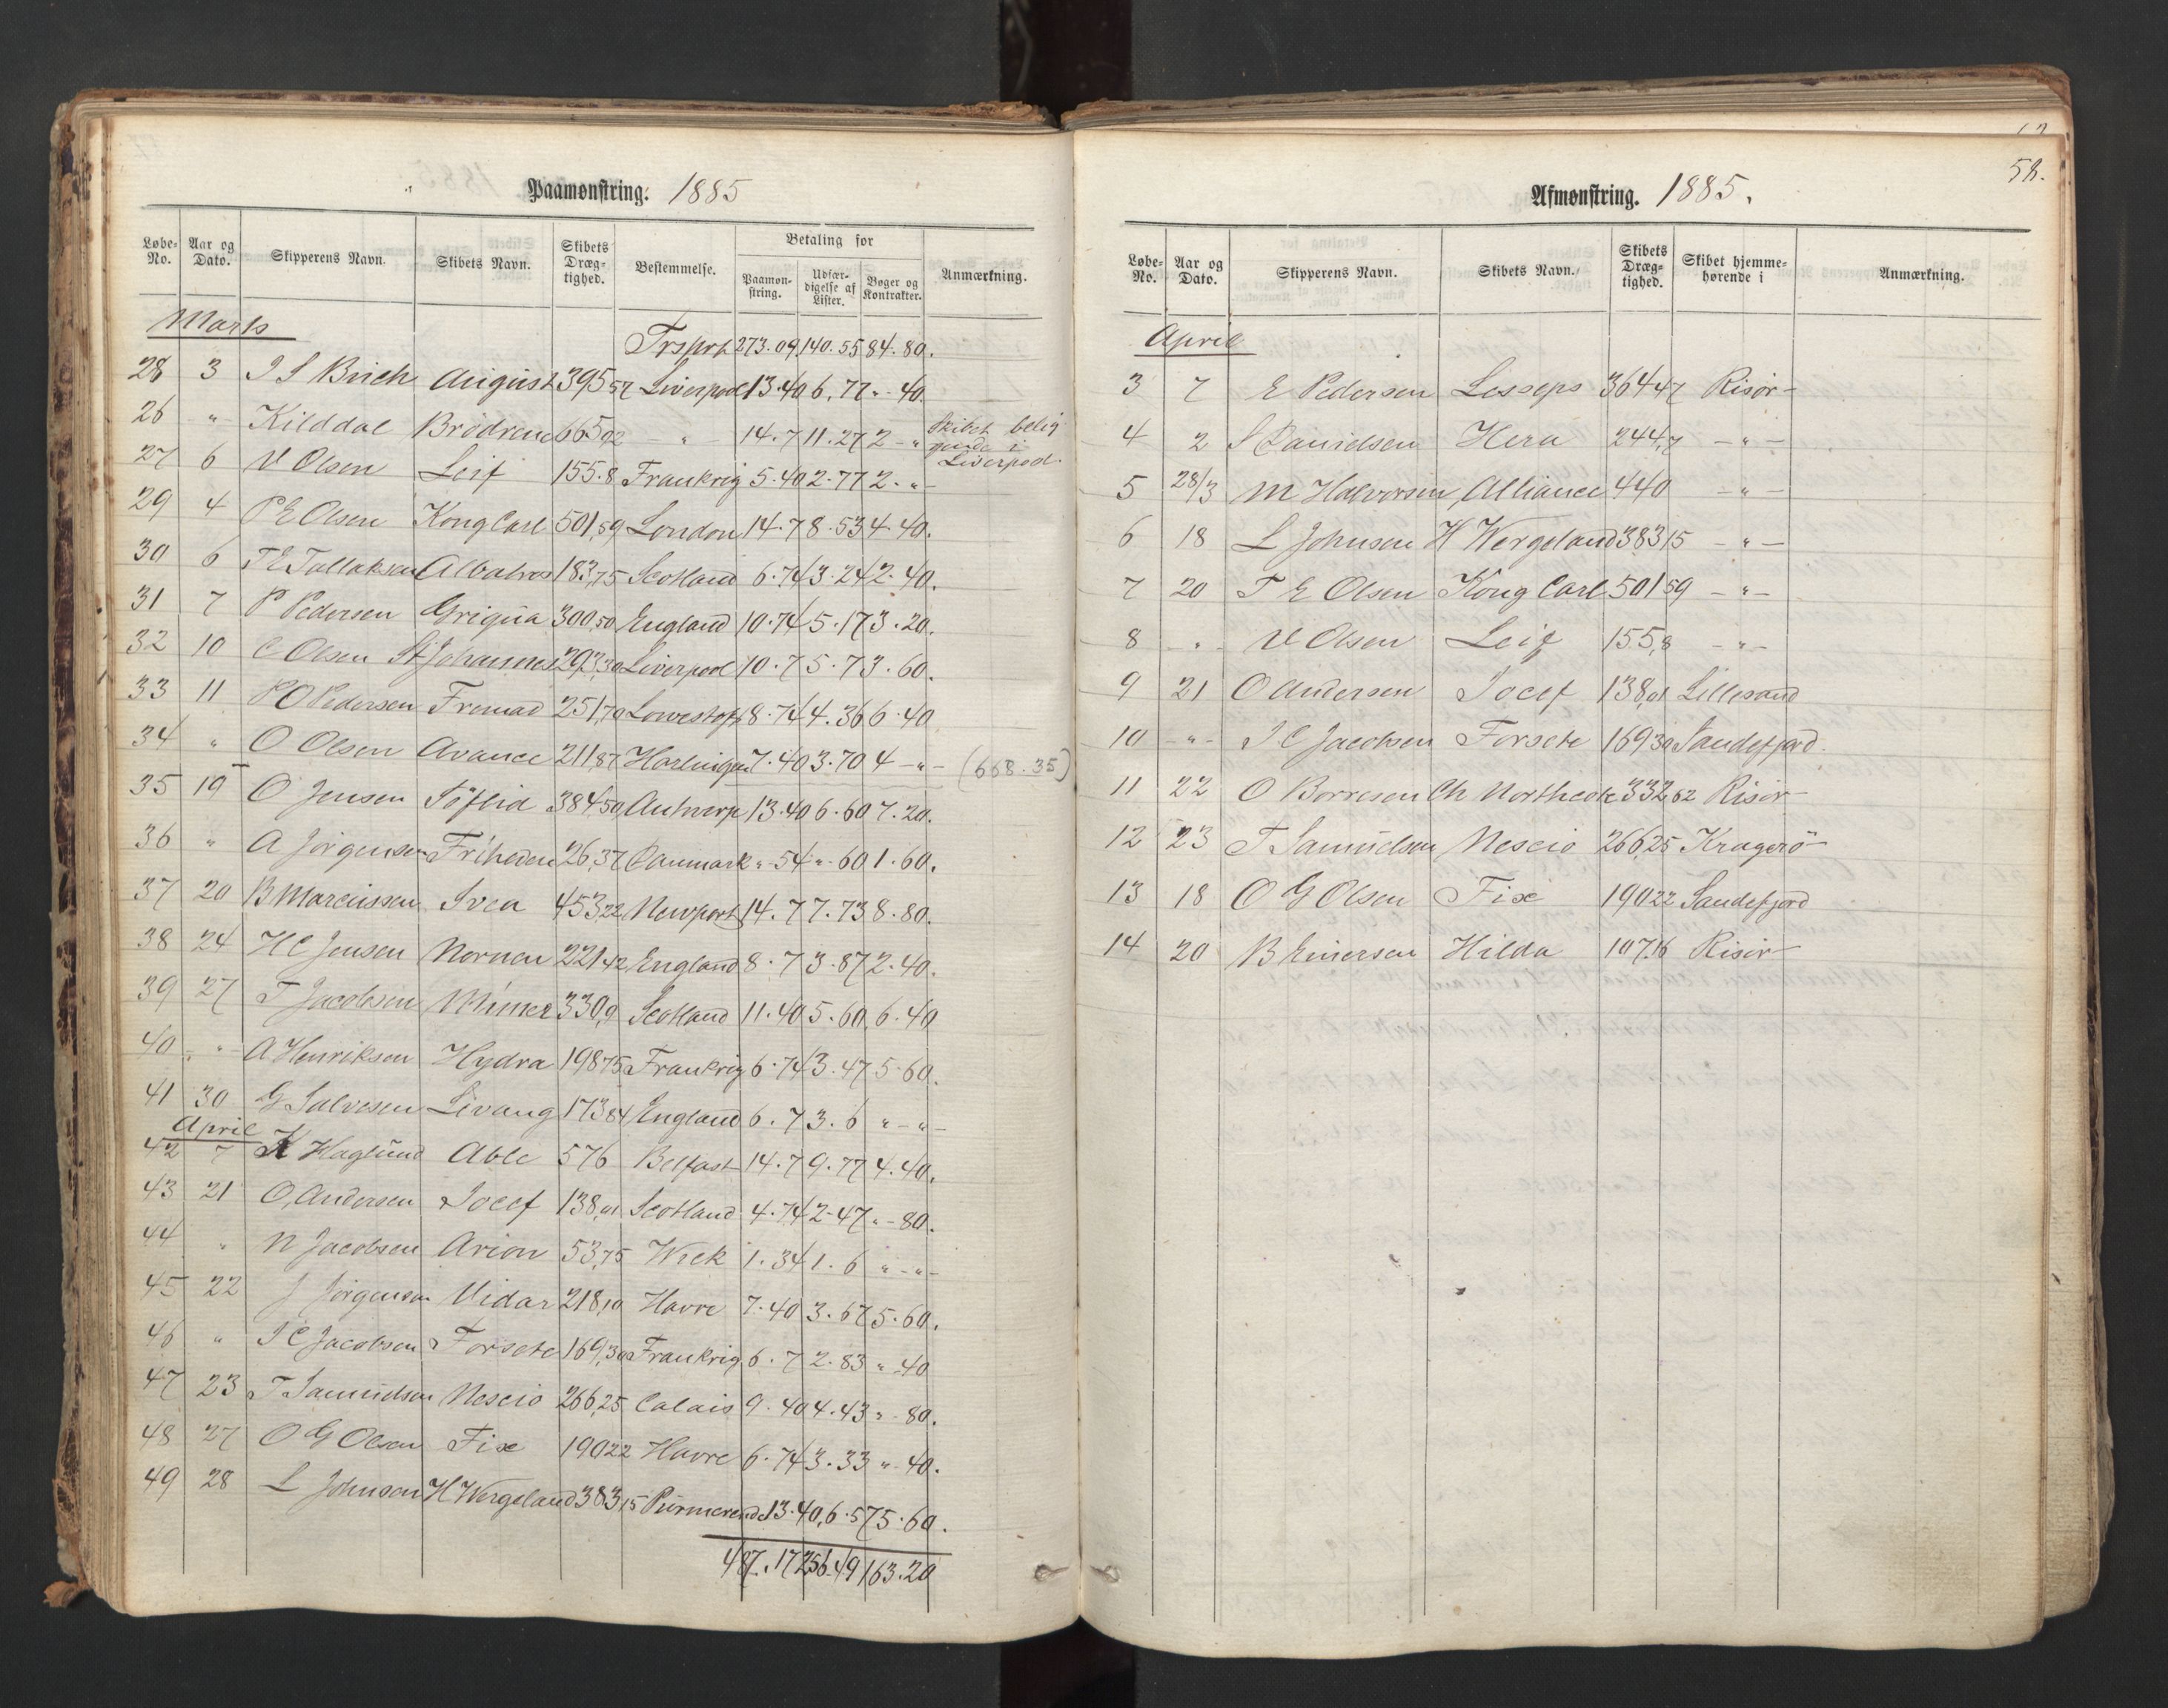 Paamønstring. 1885
Løbe-No. Aar og Dato. Skipperens Navn. Skibets Navn. Skibets Dræg-tighed. Bestemmelse. Betaling for Paamøn-string. Udfær-digelse af Lister. Bøger og Kontrakter. Anmærkning.
Marts
Trsprt 273.09 140.55 84.80.
28 3 J S Brich August 395,57 Liverpool 13.40 6.77 " - 40.
26 " Kilddal Brödrene 665,92 - " - 14.7 11.27 2 - " Skibet belig gende i Liverpool.
27 6 V Olsen Leif 155.8 Frankrig 5.40 2.77 2. " -
29 4 P E Olsen Kong Carl 501,59 London 14.7 8.53 4.40.
30 6 T E Tallaksen Albatros 183,75 Scotland 6.74 3.24 2.40.
31 7 P Pedersen Griqua 300,50 England 10.74 5.17 3.20.
32 10 C Olsen St Johannes 293,30 Liverpool 10.7 5.7 3.60.
33 11 P O Pedersen Fremad 251,70 Lowestoft 8.74 4.36 6.40
34 " O Olsen Avance 211,87 Harlingen 7.40 3.70 4 - " - (668.35)
35 19 O Jensen Söflid 384,50 Antwerp 13.40 6.60 7.20.
36 " A Jörgensen Friheden 26,37 Danmark " - 54 " - 60 1.60.
37 20 B Marcussen Svea 453,22 Newport 14.7 7.73 8.80.
38 24 H C Jensen Nornen 221,42 England 8.7 3.87 2.40.
39 27 T Jacobsen Mimer 330,9 Scotland 11.40 5.60 6.40
40 - " - A Henriksen Hydra 198,75 Frankrig 6.74 3.47 5.60.
41 30 G Salvesen Levang 173,84 England 6.7 3.6 " - " -
April
42 7 K Haglund Able 576 Belfast 14.7 9.77 4.40.
43 21 O. Andersen Josef 138,01 Scotland 4.74 2.47 " - 80.
44 " N Jacobsen Arion 53,75 Wick 1.34 1.6 " - " -
45 22 J Jörgensen Vidar 218,10 Havre 7.40 3.67 5.60.
46 " J C Jacobsen Forsete 169,30 Frankrig 6.7 2.83 " - 40
47 23 T Samuelsen Nescio 266,25 Calais 9.40 4.43 " - 80.
48 27 O G Olsen Fix 190,22 Havre 6.74 3.33 " - 40.
49 28 L Johnsen H Wergeland 383,15 Purmerende 13.40 6.57 5.60.
487.17 256.49 163.20
58.
Afmønstring. 1885.
Løbe-No. Aar og Dato. Skipperens Navn. Skibets Navn. Skibets Dræg-tighed. Skibet hjemme-hørende i Anmærkning.
April
3 7 E Pedersen Lesseps 364,47 Risör
4 2 S Danielsen Hera 244,7 - " -
5 28/3 M Halvorsen Alliance 440 - " -
6 18 L Johnsen H Wergeland 383,15 - " -
7 20 T E Olsen Kong Carl 501,59 - " -
8 - " - V Olsen Leif 155,8 - " -
9 21 O Andersen Josef 138,01 Lillesand
10 - " - J C Jacobsen Forsete 169,30 Sandefjord.
11 22 O Borresen Ch Northcote 332,62 Risör
12 23 T Samuelsen Nescio 266,25 Kragerö
13 18 O G Olsen Fix 190,22 Sandefjord
14 20 B Einersen Hilda 107,16 Risör